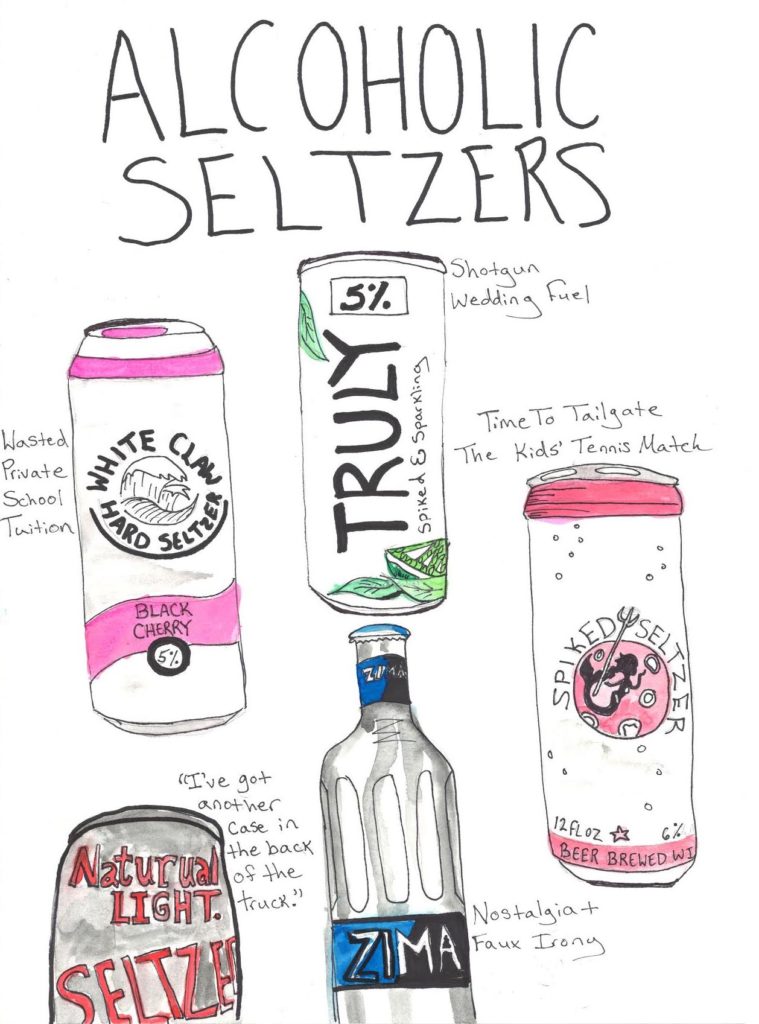 ALCOHOLIC
SELTZERS
Shotgun
Wedding Fuel
5%
TRULY
Spiked & Sparkling
Wasted
Private
School
Tuition
WHITE CLAW
HARD SELTZER
BLACK
CHERRY
5%
Time To Tailgate
The Kids' Tennis Match
SPIKED SELTZER
12FLOZ 6%
BEER BREWED WI
"I've got
another
case in
the back
of the
truck."
Naturual
LIGHT.
SELTZE
ZIMA
ZIMA
Nostalgia +
Faux Irony